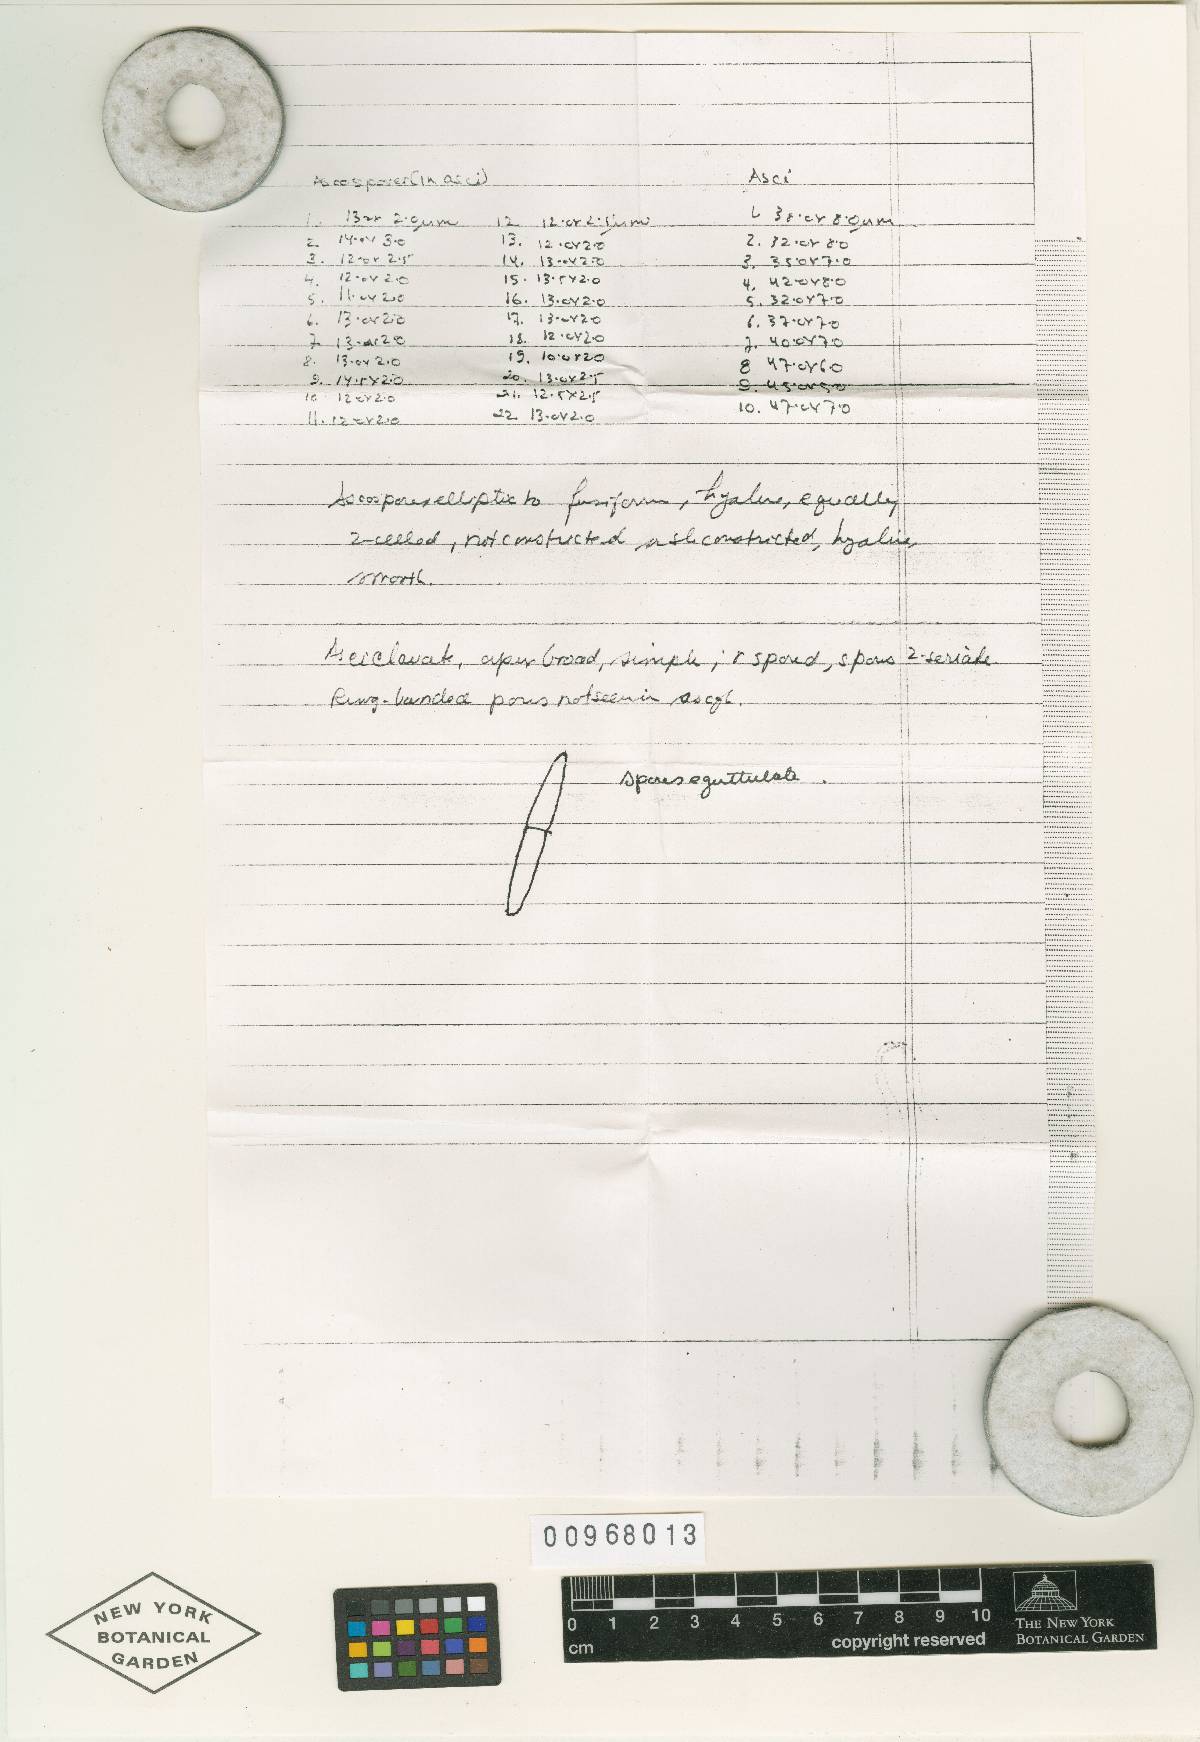 Ascospores (in asci)
Asci
1. 13.0x 2.0µm
2. 14.0x 3.0
3. 12.0x 2.5
4. 12.0x2.0
5. 11.0x2.0
6. 13.0x2.0
7. 13.0x2.0
8. 13.0x2.0
9. 14.5x2.0
10. 12.0x2.0
11. 12.0x2.0
12. 12.0x2.5µm
13. 12.0x2.0
14. 13.0x2.0
15. 13.5x2.0
16. 13.0x2.0
17. 13.0x2.0
18. 12.0x2.0
19. 10.0x2.0
20. 13.0x2.5
21. 12.5x2.5
22. 13.0x2.0
1. 38.0x8.0µm
2. 32.0x8.0
3. 35.0x7.0
4. 42.0x8.0
5. 32.0x7.0
6. 37.0x7.0
7. 40.0x7.0
8 47.0x6.0
9. 45.0x5.0
10. 47.0x7.0
Ascospores elliptic to fusiform, hyaline, equally
2-celled, not constricted or sl. constricted, hyaline,
smooth.
Asci clavate, apex broad, simple, 8 spored, spores 2-seriate
Ring-banded pores not seen in
Spores eguttulate.
00968013
NEW YORK
BOTANICAL
GARDEN
0 1 2 3 4 5 6 7 8 9 10
cm
copyright reserved
THE NEW YORK
BOTANICAL GARDEN